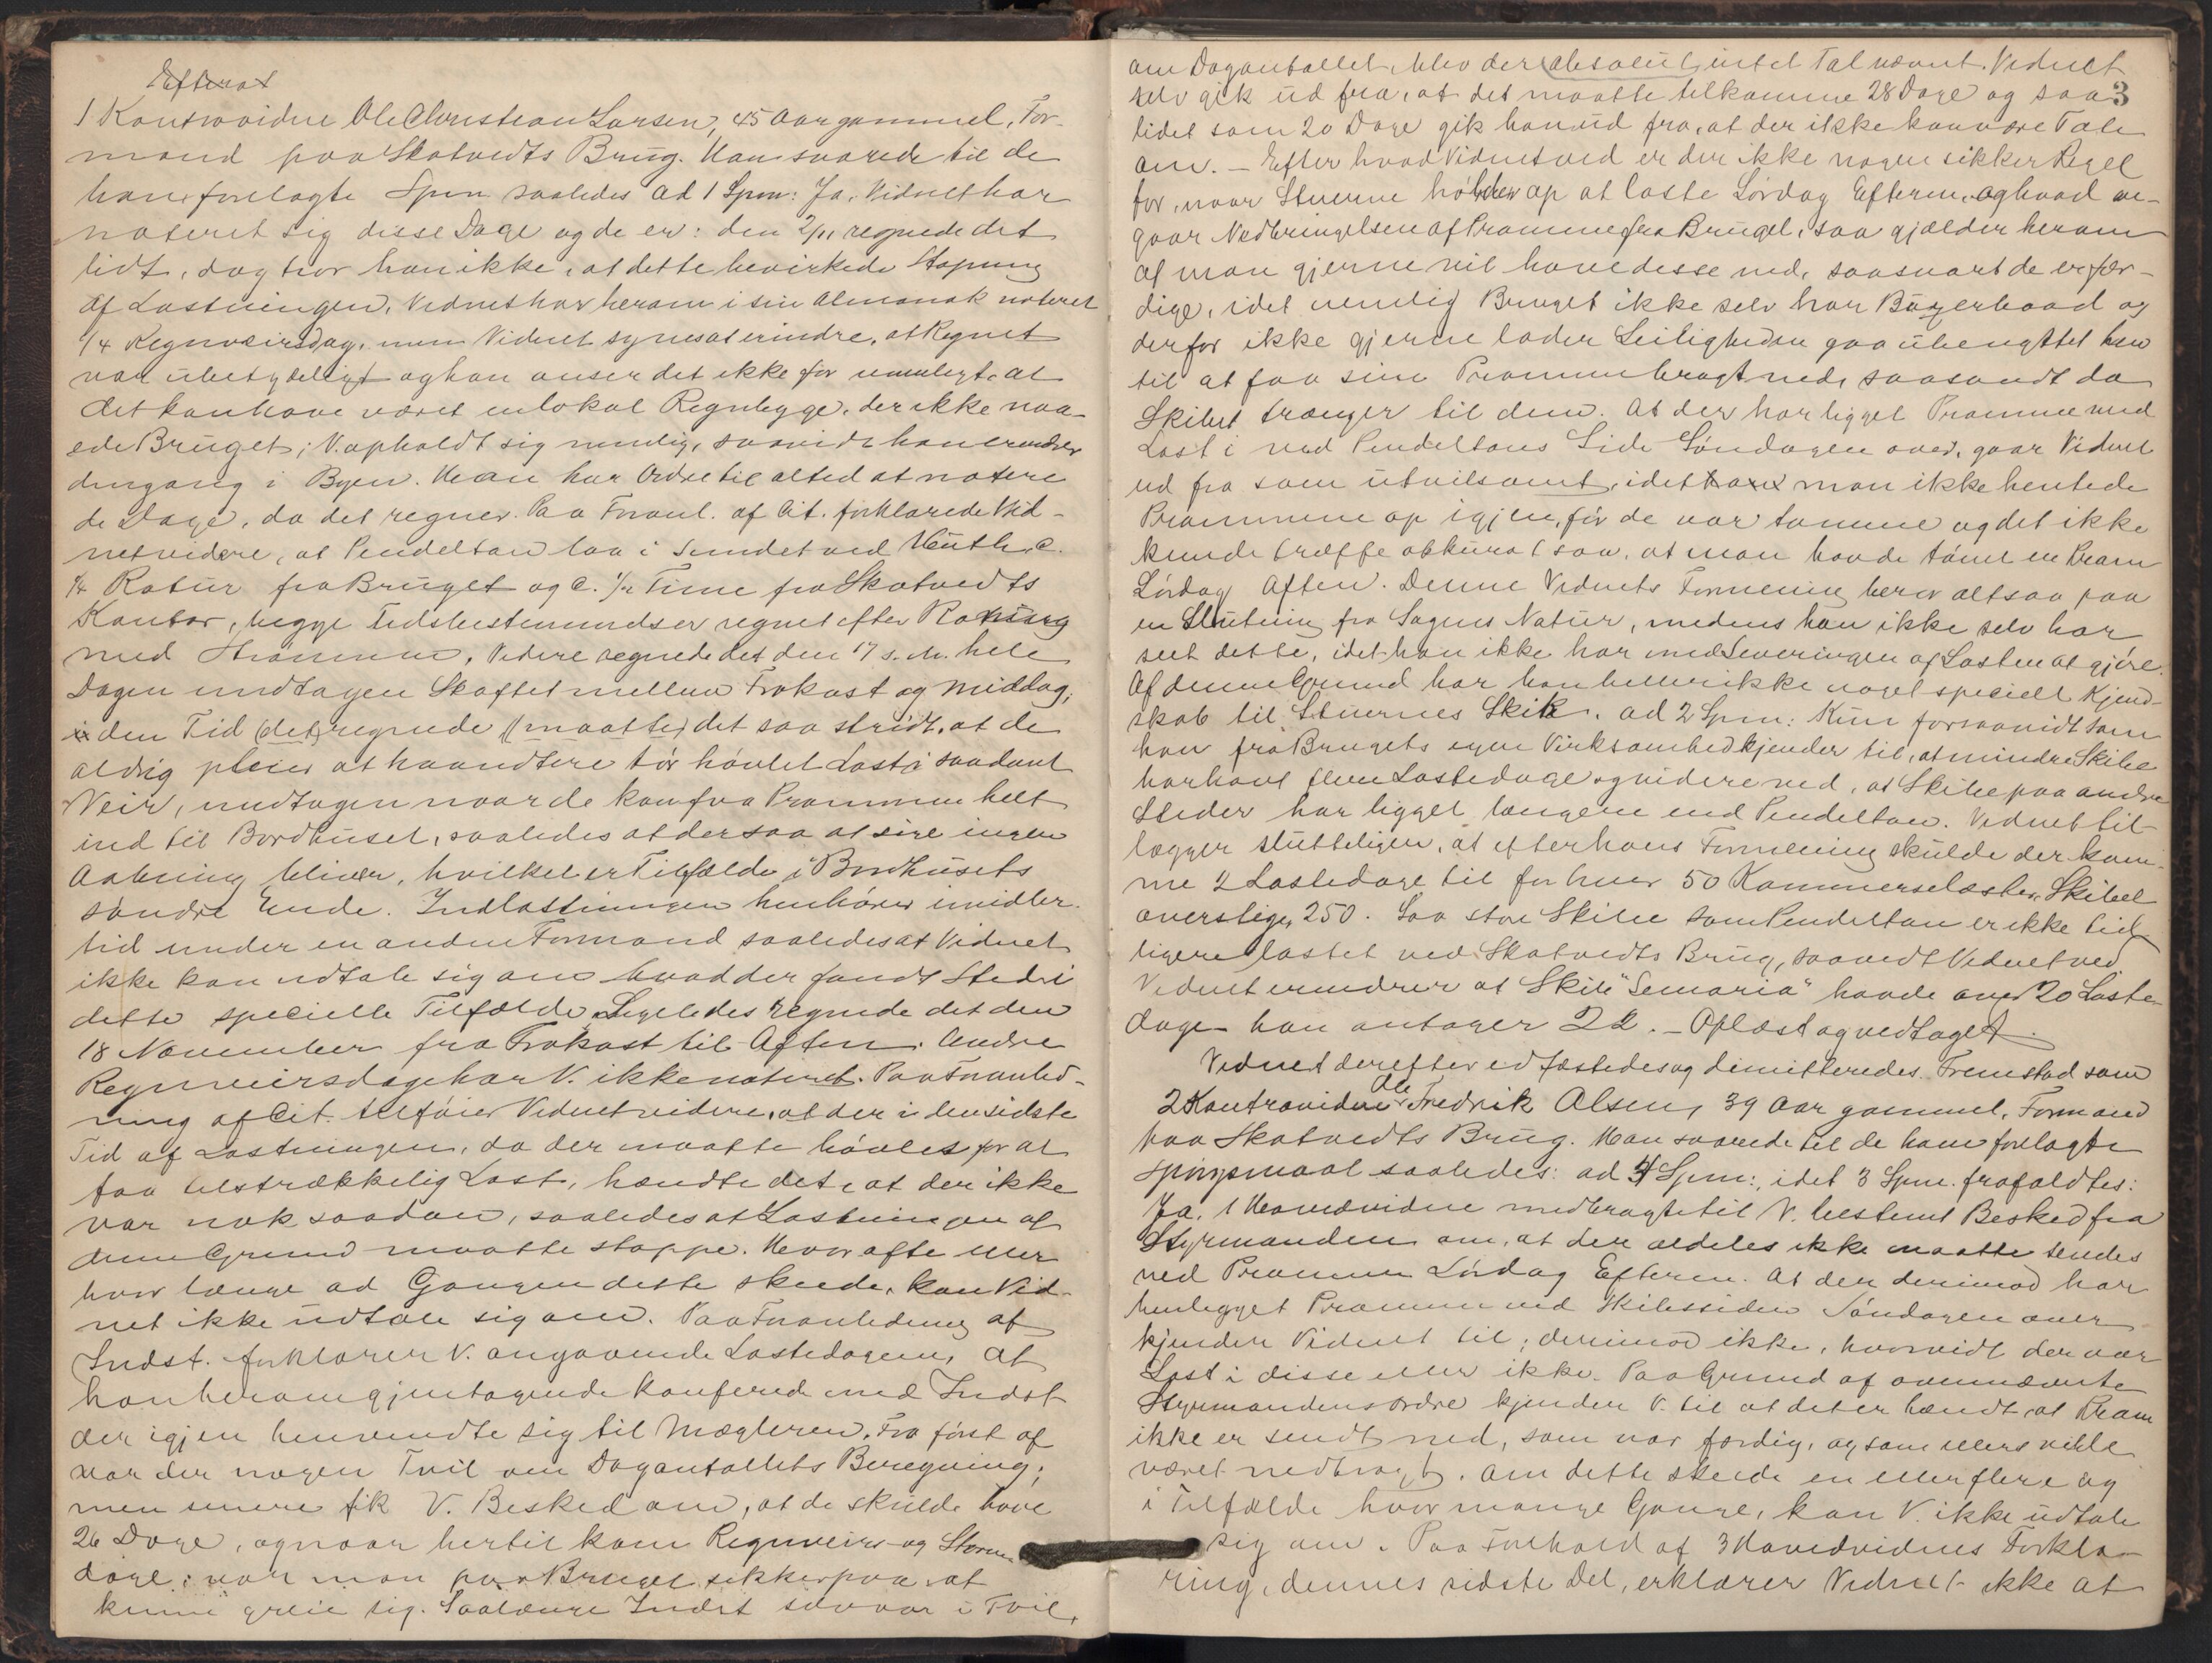 Efterat
1 Kontravidne Ole Christian Larsen, 45 Aar gammel, For-
mand paa Skatvedts Brug. Han svarede til de
ham forelagte Spm saaledes ad 1 Spm: Ja, Vidnet har
noteret sig disse Dage og de er: den 2/11 regnede det
lidt, dog tror han ikke, at dette bevirkede Stopning
af Lastningen. Vidnet har herom i sin Almanak noteret
1/4 Regnveirsdag, men Vidnet synes at erindre, at Regnet
var ubetydeligt og han anser det ikke for umuligt, at
det kan have været en lokal Regnbyge, der ikke naa-
ede Bruget; V. opholdt sig nemlig, saavidt han erindrer
dengang i Byen. Han har Ordre til altid at notere
de Dage, da det regner. Paa Foranl. af Cit. forklarede Vid-
net videre, at Pendelton laa i Sundet ved c.
1/4 Rotur fra Bruget og c. 1/2 Time fra Skatvedts
Kontor, begge Tidsbestemmelser regnet efter Roning
med Strømmen. Videre regnede det den 17 s. M. hele
Dagen undtagen Skaftet mellem Frokost og Middag,
i den Tid (det) regnede (maatte) det saa stridt, at de
aldrig pleier at haandtere tør høvlet Last i saadant
Veir, undtagen naar de kan faa Prammen helt
ind til Bordhuset, saaledes at der saa at sige ingen
Aabning bliver, hvilket er Tilfælde i Bordhusets
søndre Ende. Indlastningen henhører imidler-
tid under en anden Formand saaledes at Vidnet
ikke kan udtale sig om hvad der fandt Sted i
dette specielle Tilfælde. Ligeledes regnede det den
18 November fra Frokost til Aften. Andre
Regnveirsdage har V. ikke noteret. Paa Foranled-
ning af Cit. tilføier Vidnet videre, at der i den sidste
Tid af Lastningen, da der maatte høvles for at
faa tilstrækkelig Last, hændte det, at der ikke
var nok saadan, saaledes at Lastningen af
denne Grund maatte stoppe. Hvor ofte eller
hvor længe ad Gangen dette skeede, kan Vid-
net ikke udtale sig om. Paa Foranledning af
Indst. forklarer V. angaaende Lastedagene, at
han herom gjentagende konfererede med Indst
der igjen henvendte sig til Mægleren. Fra først af
var der nogen Tvil om Dagantallets Beregning;
men senere fik V. Besked om, at de skulde have
26 Dage, og naar hertil kom Regnveirs- og Storm
dage, var man paa Bruget sikker paa at
kunne greie sig. Saalænge Indst selv var i Tvil,
om Dagantallet, blev der (absolut) intet Tal nævnt. Vidnet
selv gik ud fra, at det maatte tilkomme 28 Dage og saa 3
lidet som 20 Dage gik han ud fra, at der ikke kan være Tale
om. – Efter hvad Vidnet ved er der ikke nogen sikker Regel
for, naar Stuerne holder op at laste Lørdag Efterm. og hvad an-
gaar Nedbringelsen af Prammene fra Bruget, saa gjælder herom
at man gjerne vil have disse ned, saasnart de er fær-
dige, idet nemlig Bruget ikke selv har Bugserbaad og
derfor ikke gjerne lader Leiligheden gaa ubenyttet hen
til at faa sine Pramme bragt ned, saasandt da
Skibet trænger til dem. At der har ligget Pramme med
Last i ved Pendeltons Side Søndagen over, gaar Vidnet
ud fra som utvilsomt, idet man ikke hentede
Prammene op igjen, før de var tomme og det ikke
kunde træffe akkurat saa, at man havde tømt en Pram
Lørdag Aften. Denne Vidnets Formening beror altsaa paa
en Slutning fra Sagens Natur, medens han ikke selv har
seet dette, idet han ikke har med Leveringen af Lasten at gjøre.
Af denne Grund har han heller ikke noget specielt Kjend-
skab til Stuernes Skik. ad 2 Spm: Kun forsaavidt som
han fra Brugets egen Virksomhed kjender til, at mindre Skibe
har havt flere Lastedage og videre ved, at Skibe paa andre
Steder har ligget længere end Pendelton. Vidnet til-
lægger slutteligen, at efter hans Formening skulde der kom-
me 2 Lastedage til for hver 50 Kommerselæster, Skibet
overstiger 250. Saa store Skibe som Pendelton er ikke tid-
ligere lastet ved Skatvedts Brug, saavidt Vidnet ved
Vidnet erindrer at Skib "Semaria" havde over 20 Laste-
dage han antager 22. – Oplæst og vedtaget.
Vidnet derefter edfæstedes og dimitteredes. Fremstod som
2 Kontravidne Ole Fredrik Olsen, 39 Aar gammel, Formand
paa Skatvedts Brug. Han svarede til de ham forelagte
Spørgsmaal saaledes: ad 4 Spm:, idet 3 Spm. frafaldtes:
Ja. 1 Hovedvidne medbragte til V. bestemt Besked fra
Styrmanden om, at der aldeles ikke maatte sendes
ned Pramme Lørdag Efterm. At der derimod har
henligget Pramme ved Skibssiden Søndagen over
kjender Vidnet til; derimod ikke, hvorvidt der var
Last i disse eller ikke. Paa Grund af ovennævnte
Styrmandens Ordre kjender V. til at det er hændt, at Pram
ikke er sendt ned, som var færdig, og som ellers vilde
været nedbragt. Om dette skeede en eller flere og
i Tilfælde hvor mange Gange, kan V. ikke udtale
sig om. Paa Forehold af 3 Hovedvidnes Forkla-
ring, dennes sidste Del, erklærer Vidnet ikke at